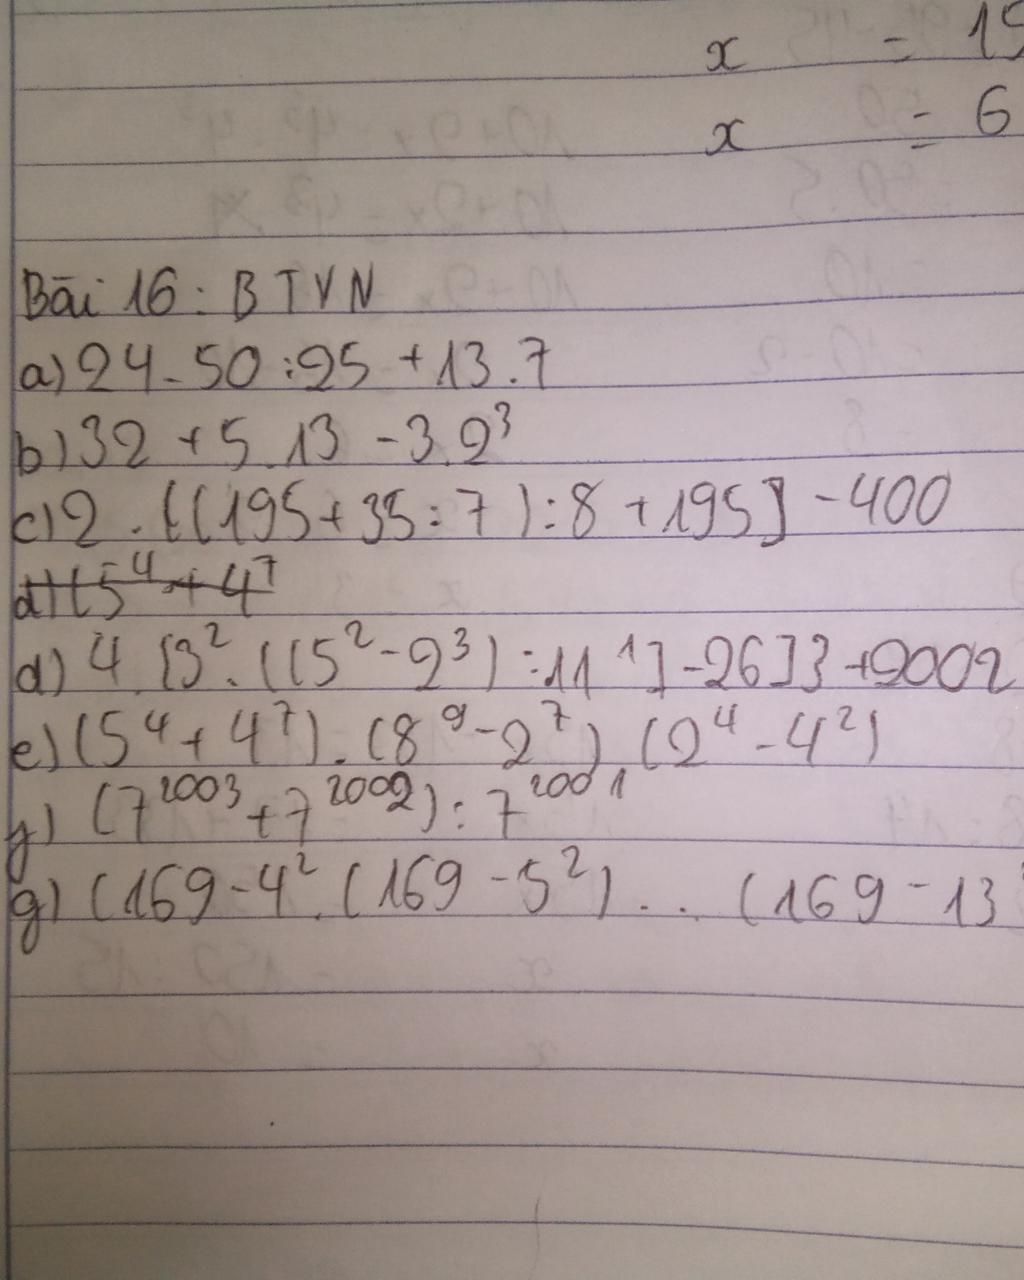 x = 15
x = 6
Bài 16: BTVN
a) 24 - 50 : 25 + 13.7
b) 32 + 5.13 - 3.2³
c) 2 . [(195 + 35 : 7) : 8 + 195] - 400
d) (5⁴ + 4⁷
d) 4 [3² . ((5² - 2³) : 11¹] - 26]} + 2002
e) (5⁴ + 4⁷) . (8⁹ - 2⁷) . (2⁴ - 4²)
g) (7²⁰⁰³ + 7²⁰⁰²) : 7²⁰⁰¹
g) (169 - 4² . (169 - 5²) . . . (169 - 13